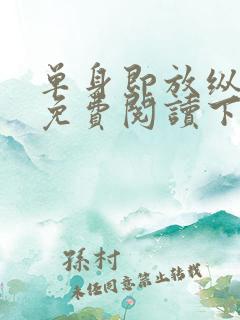 单身即放纵
免費閱讀下
孫村
未任同意禁止转载